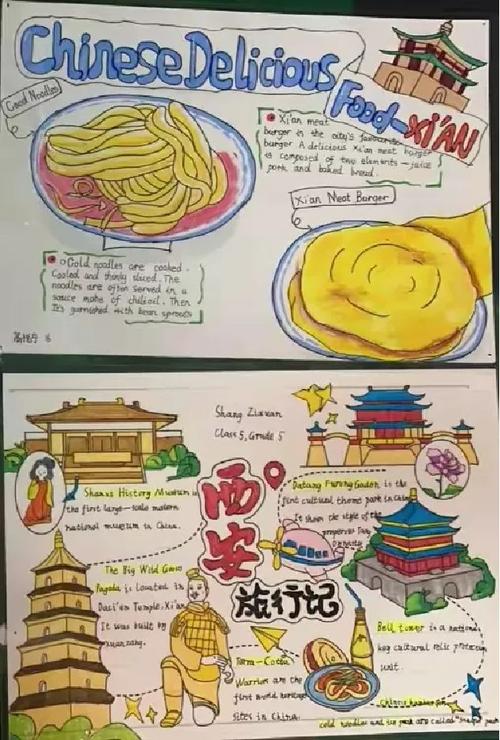 Chinese Delicious
Food-XI'AN
Good Noodles
Xi'an meat
burger is the city's favourite
burger. A delicious xi'an meat burger
is composed of two elements — juice
pork and baked bread.
Xi'an Meat Burger
Gold noodles are cooked.
Cooled and thinly sliced. The
noodles are often served in a
sauce make of chilioil. Then
It's garnished with bean sprouts
Shang Zixuan
Class 5, Grade 5
Shanxi History Museum is
the first large-scale modern
national museum in China.
Datang Furong Gaden is the
first cultural theme park in China
It shows the style of the
prosperous Tang
Dynasty
西安
旅行记
The Big Wild Goose
Pagoda is located in
Daci'en Temple, Xi'an
It was built by
xuanzang.
Terra-Cotta
Warriors are the
first world heritage
sites in China.
Bell tower is a national
key cultural relic protection
unit.
Chinese hamburger
cold noodles and ice peak are called